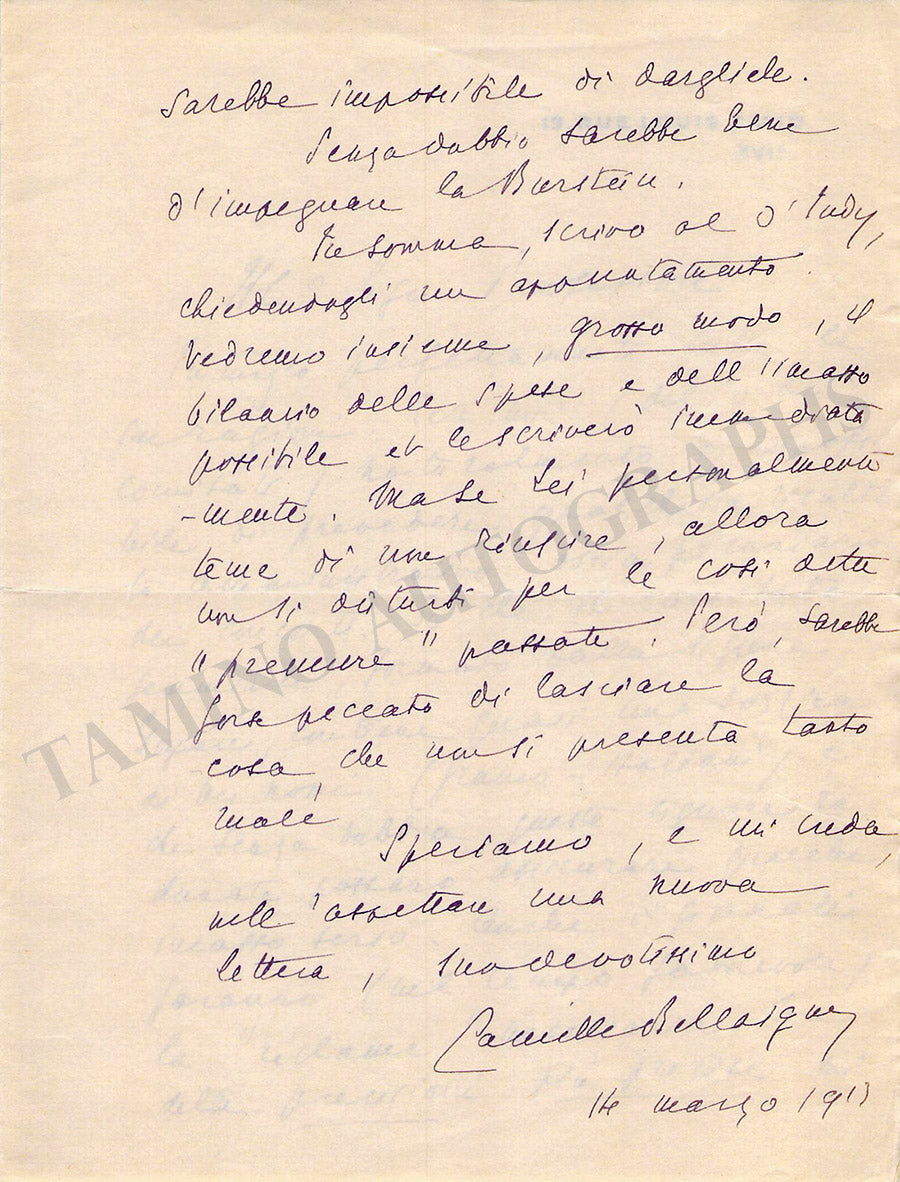 Sarebbe impossibile di dargliele.
Senza dubbio sarebbe bene
d'impegnare la Burstein.
In somma, scrivo al d'Indy,
chiedendogli un appuntamento.
Vedremo insieme, grosso modo, il
bilancio delle spese e dell'incasso
possibile et le scriverò immediata
-mente. Ma se Lei personalmente
teme di non riuscire, allora
non si disturbi per le così dette
"premure" passate. Però, sarebbe
forse peccato di lasciare la
cosa che non si presenta tanto
male.
Speriamo, e mi creda,
nell'aspettare una nuova
lettera, suo devotissimo
Camille Bellaigue
14 marzo 1913
TAMINO AUTOGRAPHS